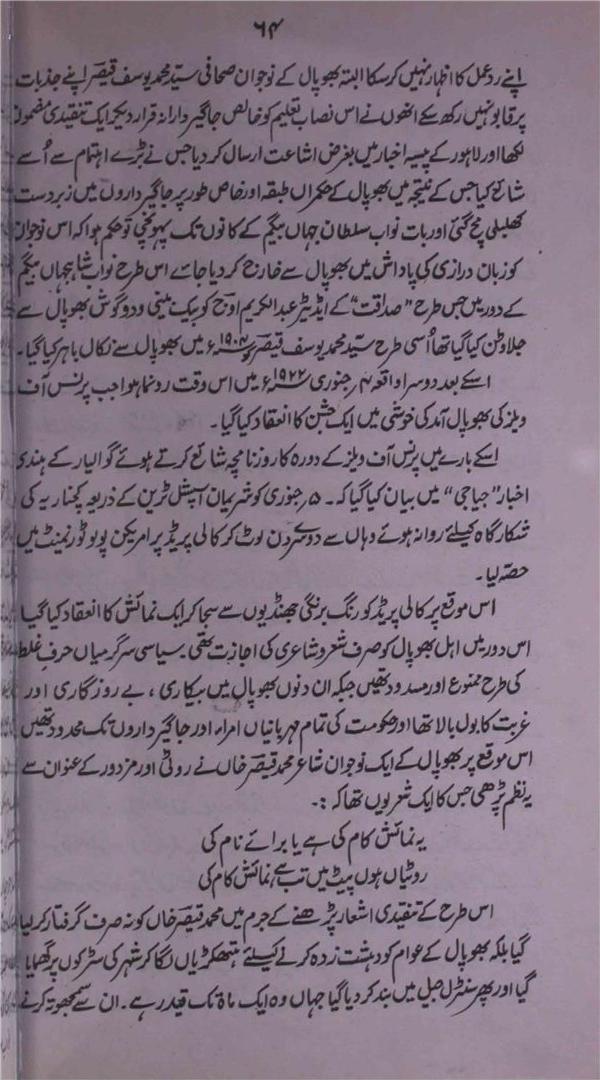 ۶۴
اپنے ردعمل کا اظہار نہیں کر سکا البتہ بھوپال کے نوجوان صحافی سید محمد یوسف قیصر اپنے جذبات
پر قابو نہیں رکھ سکے انھوں نے اس نصاب تعلیم کو خالص جاگیردارانہ قرار دیکر ایک تنقیدی مضمون
لکھا اور لاہور کے پیسہ اخبار میں بغرض اشاعت ارسال کر دیا جس نے بڑے اہتمام سے اُسے
شائع کیا جس کے نتیجہ میں بھوپال کے حکمراں طبقہ اور خاص طور پر جاگیرداروں میں زبردست
کھلبلی مچ گئی اور بات نواب سلطان جہاں بیگم کے کانوں تک پہونچی تو حکم ہوا کہ اس نوجوان
کو زبان درازی کی پاداش میں بھوپال سے خارج کر دیا جائے اس طرح نواب شاہجہاں بیگم
کے دور میں جس طرح "صداقت" کے ایڈیٹر عبدالکریم اوج کو بیک بینی و دو گوش بھوپال سے
جلا وطن کیا گیا تھا اُسی طرح سید محمد یوسف قیصر کو میں بھوپال سے نکال باہر کیا گیا۔
اسکے بعد دوسرا واقعہ ۴؍ جنوری ۱۹۲۲ء میں اس وقت رونما ہوا جب پرنس آف
ویلز کی بھوپال آمد کی خوشی میں ایک جشن کا انعقاد کیا گیا۔
اسکے بارے میں پرنس آف ویلز کے دورہ کا روزنامچہ شائع کرتے ہوئے گوالیار کے ہندی
اخبار "جیاجی" میں بیان کیا گیا کہ۔ ۵؍ جنوری کو شریمان اسپیشل ٹرین کے ذریعہ کچناریہ کی
شکار گاہ کیلئے روانہ ہوئے وہاں سے دوسرے دن لوٹ کر کالی پریڈ پر امریکن پولو ٹورنمنٹ میں
حصہ لیا۔
اس موقع پر کالی پریڈ کو رنگ برنگی جھنڈیوں سے سجا کر ایک نمائش کا انعقاد کیا گیا
اس دور میں اہل بھوپال کو صرف شعر و شاعری کی اجازت تھی۔ سیاسی سرگرمیاں حرف غلط
کی طرح ممنوع اور مسدود تھیں جبکہ ان دنوں بھوپال میں بیکاری، بے روزگاری اور
غربت کا بول بالا تھا اور حکومت کی تمام مہربانیاں امراء اور جاگیرداروں تک محدود تھیں
اس موقع پر بھوپال کے ایک نوجوان شاعر محمد قیصر خاں نے روٹی اور مزدور کے عنوان سے
یہ نظم پڑھی جس کا ایک شعر یوں تھا کہ :۔
یہ نمائش کام کی ہے یا برائے نام کی
روٹیاں ہوں پیٹ میں تب ہے نمائش کام کی
اس طرح کے تنقیدی اشعار پڑھنے کے جرم میں محمد قیصر خاں کو نہ صرف گرفتار کر لیا
گیا بلکہ بھوپال کے عوام کو دہشت زدہ کرنے کیلئے ہتھکڑیاں لگا کر شہر کی سڑکوں پر گھمایا
گیا اور پھر سنٹرل جیل میں بند کر دیا گیا جہاں وہ ایک ماہ تک قید رہے۔ ان سے سمجھوتہ کرنے